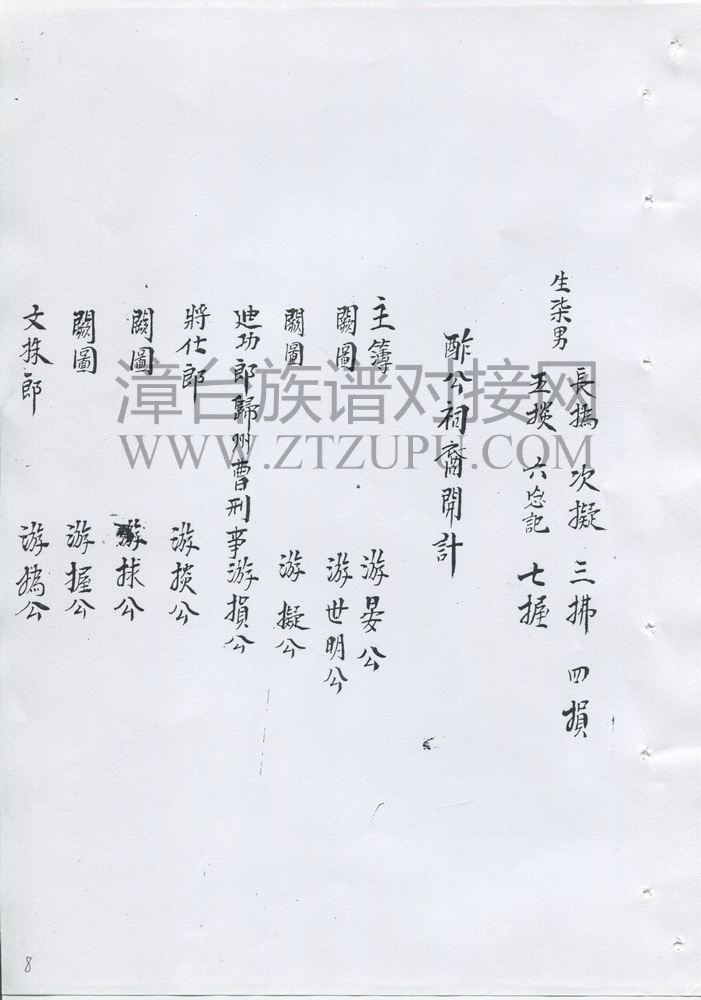 生柒男
長撝 次擬 三拂 四損
五掞 六忘記 七握
酢公祠裔開計
主簿 游晏公
闕圖 游世明公
闕圖 游擬公
迪功郎歸州曹刑事 游損公
將仕郎 游掞公
闕圖 游捄公
闕圖 游握公
文捄郎 游撝公
漳台族谱对接网
WWW.ZTZUPU.COM
8